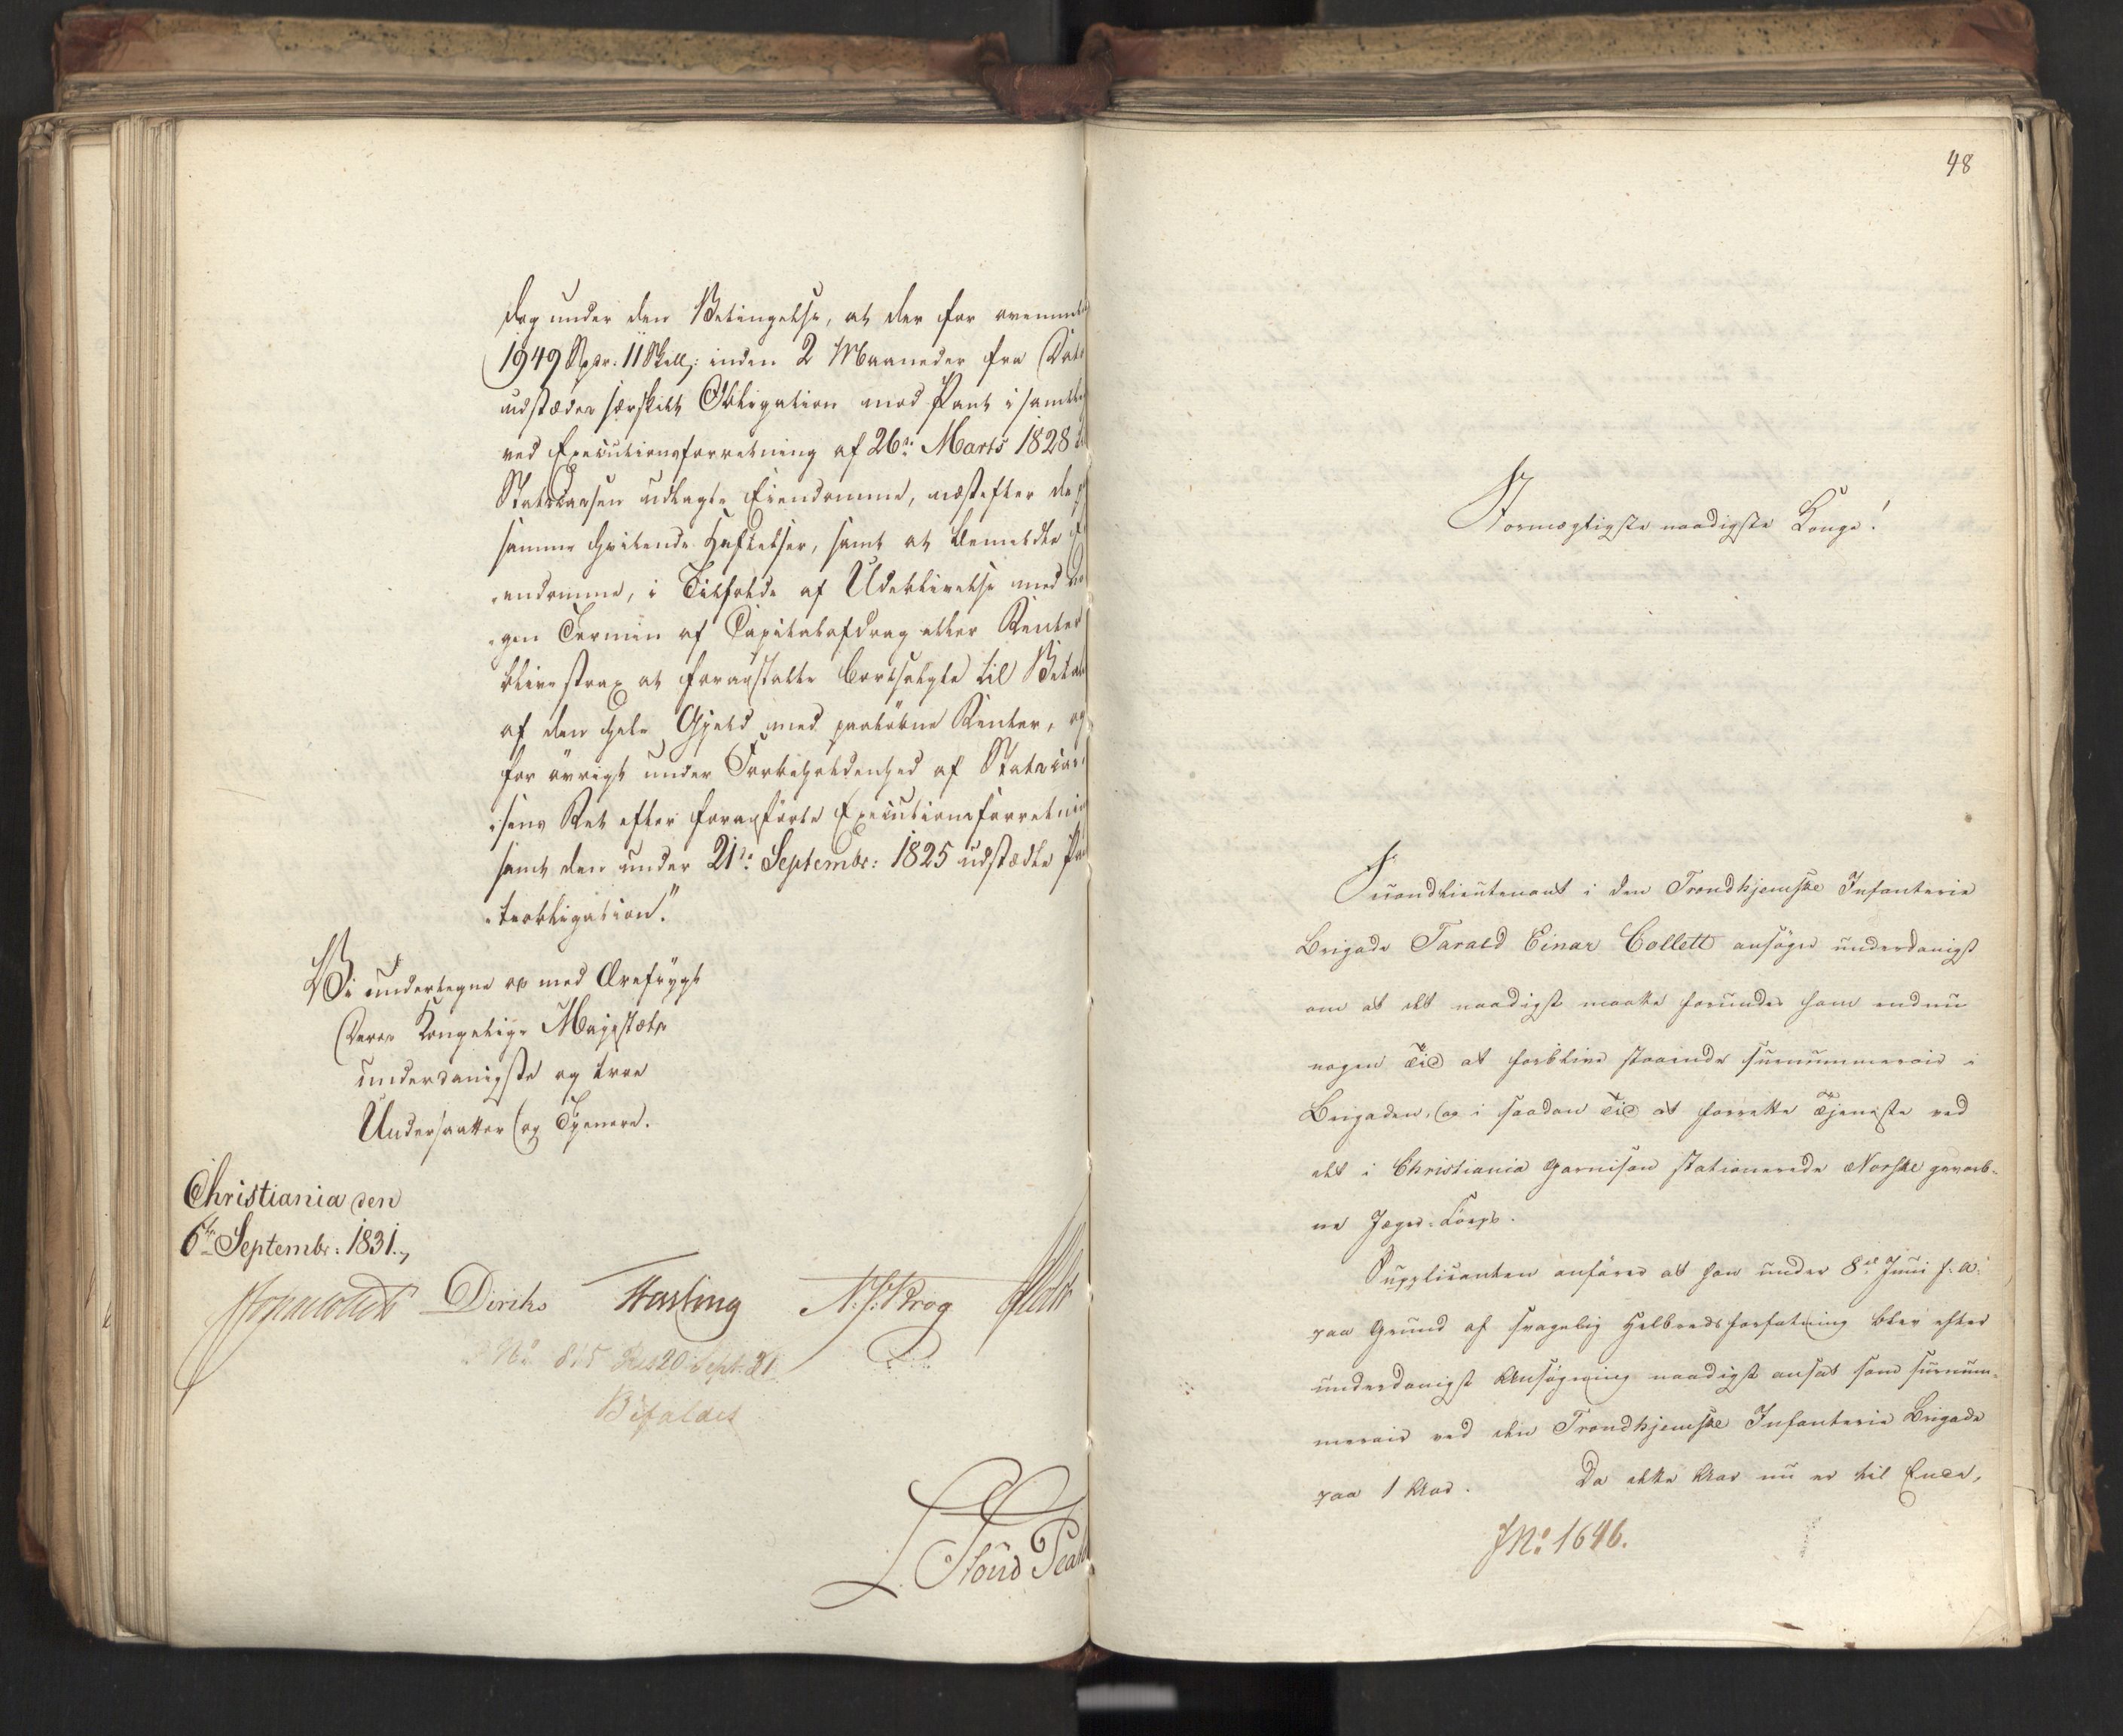 dog under den Betingelse, at der for ovenmeldte
1949 Spdr. 11 Skell: inden 2 Maaneder fra Dato
udstædes særskilt Obligation med Pant i samtlige
ved Executionsforretning af 26de Marts 1828
Statscassen udlagte Eiendomme, næstefter de
samme hvilende Heftelser, samt at bemeldte
endomme, i Tilfælde af Udeblivelse med
gen Termin af Capitalafdrag eller Renter
blive strax at foranstalte bortsolgte til
af den hele Gjeld med paaløbne Renter, og
for övrigt under Forbeholdenhed af Statscas¬
sens Ret efter foranførte Executionsforretning
samt den under 21de Septembr: 1825 udstædte
teobligation."
Vi undertegne os med Ærefrygt
Deres Kongelige Majestæts
underdanigste og troe
Undersaatter og Tjenere.
Christiania den
6te Septembr: 1831.
Diriks N. J. Krog
No 815 Res 20 Sept. 31.
Bifaldet
48
Stormægtigste naadigste Konge!
Secondlieutenant i den Trondhjemske Infanterie
Brigade Tarald Einar Collett ansøger underdanigst
om at det naadigst maatte forundes ham endnu
nogen Tid at forblive staaende surnummerair i
Brigaden, og i saadan Tid at forrette Tjeneste ved
det i Christiania Garnison stationerede Norske gevorb¬
ne Jæger-Corps.
Supplicanten anfører at han under 8de Juni f. A.
paa Grund af svagelig Helbredsforfatning blev efter
underdanigst Ansøgning naadigst ansat som surnum¬
merair ved den Trondhjemske Infanterie Brigade
paa 1 Aar. Da dette Aar nu er til Ende,
JNo: 1646.